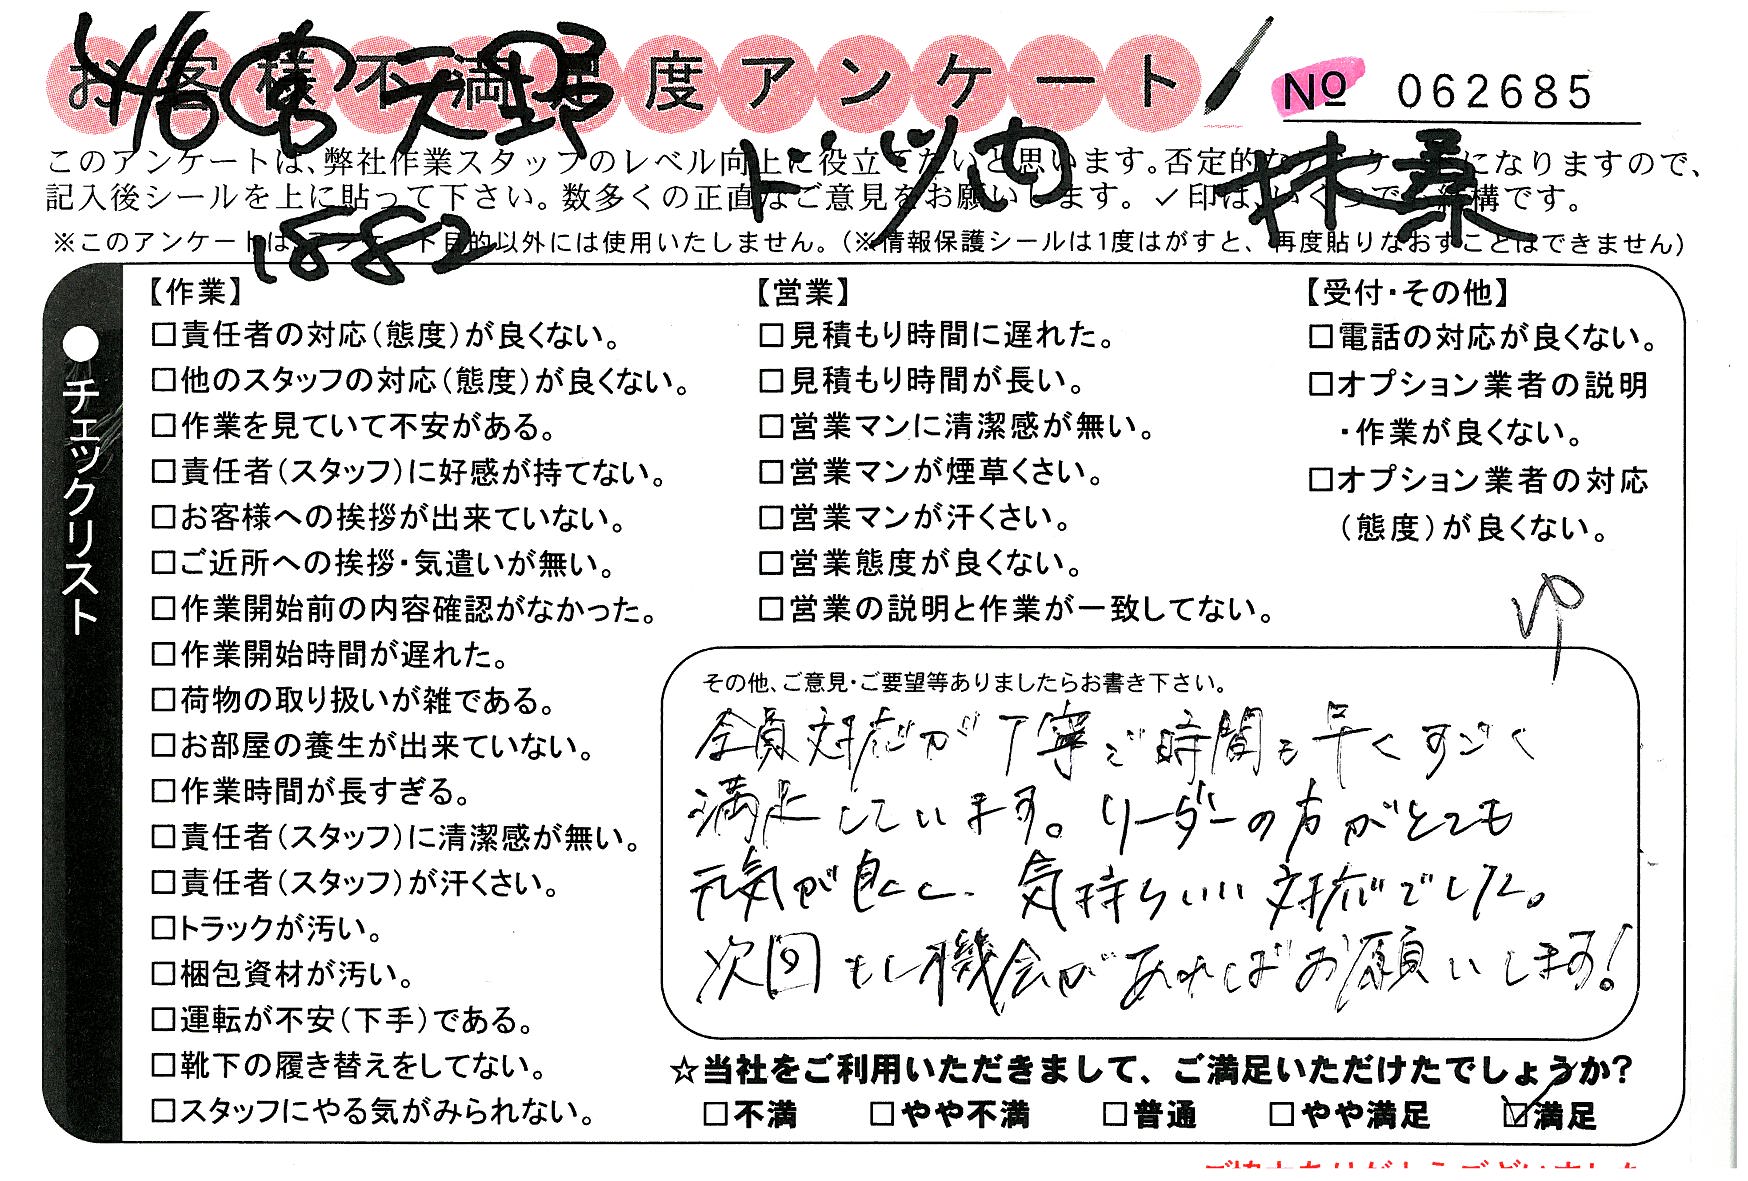 お客様不満足度アンケート
No 062685
4/6 宮 天野
1882
このアンケートは、弊社作業スタッフのレベル向上に役立てたいと思います。否定的なアンケートになりますので、
記入後シールを上に貼って下さい。数多くの正直なご意見をお願いします。✓印は、いくつでも結構です。
※このアンケートは、アンケート目的以外には使用いたしません。(※情報保護シールは1度はがすと、再度貼りなおすことはできません)
チェックリスト
【作業】
□責任者の対応(態度)が良くない。
□他のスタッフの対応(態度)が良くない。
□作業を見ていて不安がある。
□責任者(スタッフ)に好感が持てない。
□お客様への挨拶が出来ていない。
□ご近所への挨拶・気遣いが無い。
□作業開始前の内容確認がなかった。
□作業開始時間が遅れた。
□荷物の取り扱いが雑である。
□お部屋の養生が出来ていない。
□作業時間が長すぎる。
□責任者(スタッフ)に清潔感が無い。
□責任者(スタッフ)が汗くさい。
□トラックが汚い。
□梱包資材が汚い。
□運転が不安(下手)である。
□靴下の履き替えをしてない。
□スタッフにやる気がみられない。
【営業】
□見積もり時間に遅れた。
□見積もり時間が長い。
□営業マンに清潔感が無い。
□営業マンが煙草くさい。
□営業マンが汗くさい。
□営業態度が良くない。
□営業の説明と作業が一致してない。
【受付・その他】
□電話の対応が良くない。
□オプション業者の説明
・作業が良くない。
□オプション業者の対応
(態度)が良くない。
ゆ
その他、ご意見・ご要望等ありましたらお書き下さい。
全員対応が丁寧で時間も早くすごく
満足しています。リーダーの方がとても
元気が良くて、気持ちいい対応でした。
次回もし機会があればお願いします!
☆当社をご利用いただきまして、ご満足いただけたでしょうか?
□不満 □やや不満 □普通 □やや満足 ☑満足
ご協力ありがとうございました